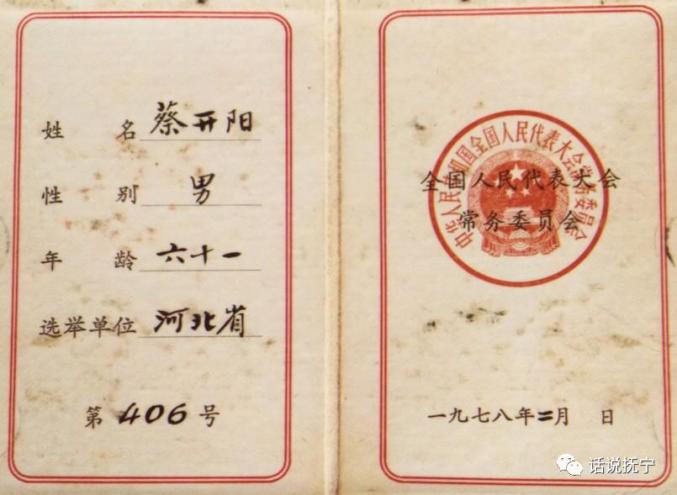 姓 名 蔡开阳
性 别 男
年 龄 六十一
选举单位 河北省
第 406 号
中华人民共和国全国人民代表大会常务委员会
全国人民代表大会
常务委员会
一九七八年二月 日
话说抚宁